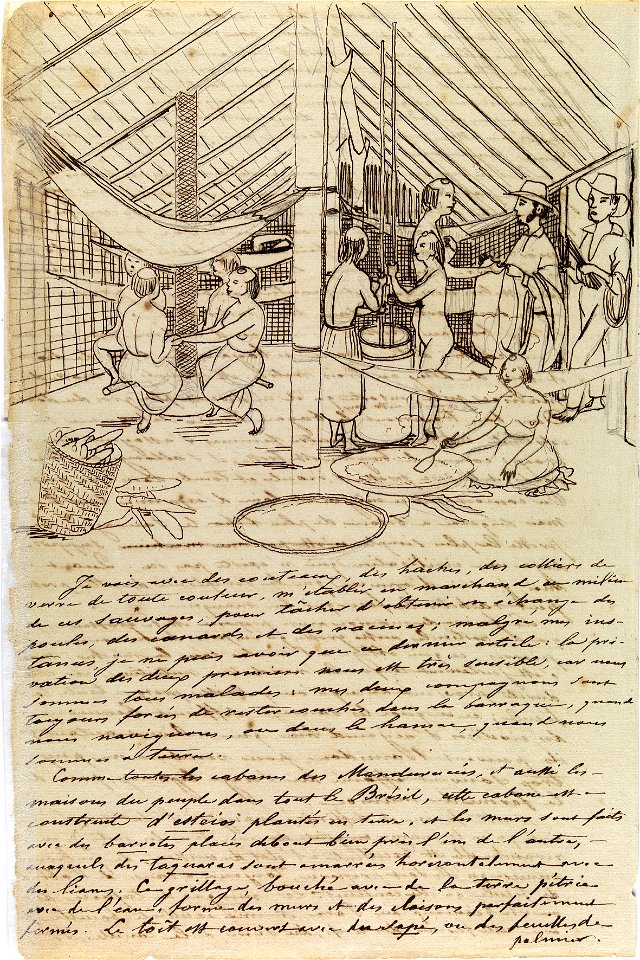 Je vais avec des couteaux, des haches, des colliers de
verre de toute couleur, m'établir en marchand au milieu
de ces sauvages, pour tâcher d'obtenir en échange des
poules, des canards et des racines; malgré mes ins-
tances je ne puis avoir que ce dernier article: la pri-
vation des deux premiers nous est très sensible, car nous
sommes tous malades: mes deux compagnons sont
toujours forcés de rester couchés dans la barraque, quand
nous naviguons, ou dans le hamac, quand nous
sommes à terre.
Comme toutes les cabanes des Mandurucús, et aussi les
maisons du peuple dans tout le Brésil, cette cabane est
construite d'esteios plantés en terre, et les murs sont faits
avec des barrotes placés debout bien près l'un de l'autre,
auxquels des taquaras sont amarrées horizontalement avec
des lianes. Ce grillage, bouché avec de la terre pétrie
avec de l'eau, forme des murs et des cloisons parfaitement
fermés. Le toît est couvert avec du sapé, ou des feuilles de
palmier.